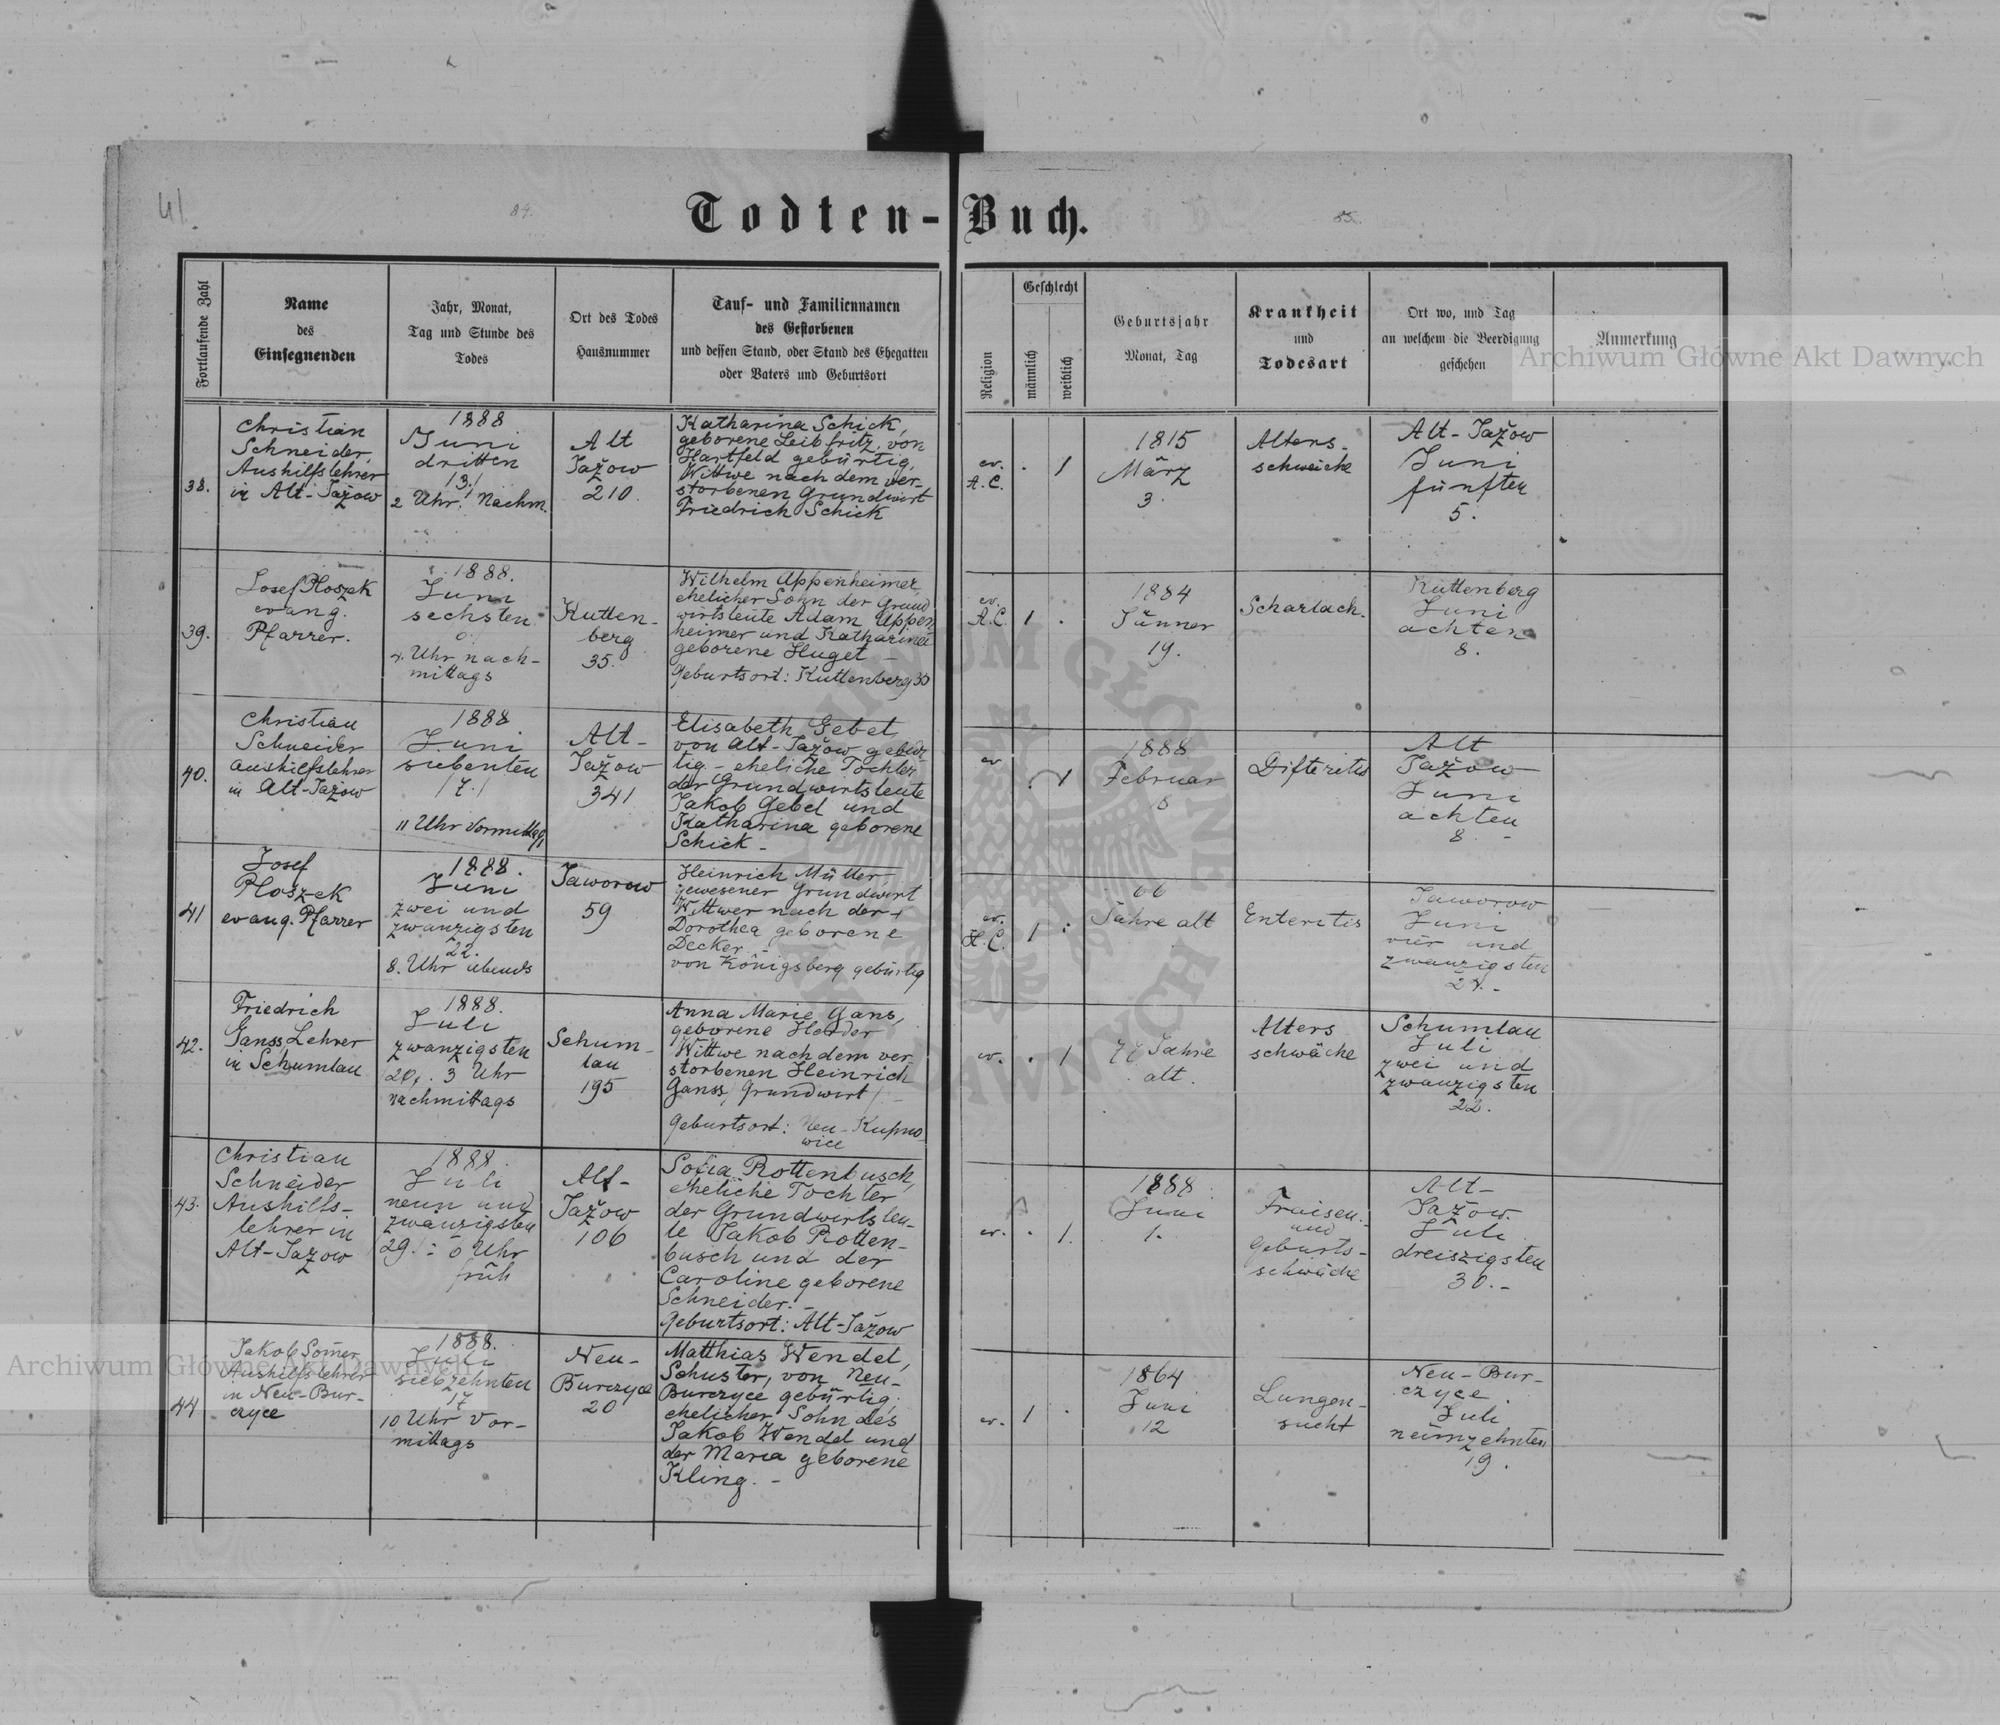 41.
84.
85.
Todten-Buch.
Fortlaufende Zahl
Name
des
Einsegnenden
Jahr, Monat,
Tag und Stunde des
Todes
Ort des Todes
Hausnummer
Tauf- und Familiennamen
des Gestorbenen
und dessen Stand, oder Stand des Ehegatten
oder Vaters und Geburtsort
Religion
Geschlecht
männlich
weiblich
Geburtsjahr
Monat, Tag
Krankheit
und
Todesart
Ort wo, und Tag
an welchem die Beerdigung
geschehen
Anmerkung
Archiwum Główne Akt Dawnych
38.
Christian
Schneider,
Aushilfslehrer
in Alt-Jažow
1888
Juni
dritten
/3./
2 Uhr. Nachm.
Alt
Jažow
210.
Katharina Schick,
geborene Leibfritz, von
Hartfeld gebürtig,
Wittwe nach dem ver-
storbenen Grundwirt
Friedrich Schick
ev.
A.C.
. 1
1815
März
3.
Alters-
schwäche
Alt-Jažow
Juni
fünften
5.
39.
Josef Ploszek
evang.
Pfarrer.
1888.
Juni
sechsten
6.
4. Uhr nach-
mittags
Kutten-
berg
35.
Wilhelm Uppenheimer,
ehelicher Sohn der Grund
wirtsleute Adam Uppen
heimer und Katharina
geborene Huget -
Geburtsort: Kuttenberg 35
ev.
A.C.
1 .
1884
Jänner
19.
Scharlach.
Kuttenberg
Juni
achten
8.
40.
Christian
Schneider
Aushilfslehrer
in Alt-Jažow
1888
Juni
siebenten
/7./
11 Uhr Vormittag
Alt-
Jažow
341
Elisabeth Gebel,
von Alt-Jažow gebür
tig. - eheliche Tochter
der Grundwirtsleute
Jakob Gebel und
Katharina geborene
Schick -
ev
. 1
1888
Februar
8
Difteritis
Alt
Jažow
Juni
achten
8. -
41
Josef
Ploszek
evang. Pfarrer
1888.
Juni
zwei und
zwanzigsten
22.
8. Uhr abends
Jaworow
59
Heinrich Müller
gewesener Grundwirt
Wittwer nach der +
Dorothea geborene
Decker -
von Königsberg gebürtig
ev.
H.C.
1 .
66
Jahre alt
Enteritis
Jaworow
Juni
vier und
zwanzigsten
24. -
42.
Friedrich
Ganss Lehrer
in Schumlau
1888.
Juli
zwanzigsten
20/. 3 Uhr
nachmittags
Schum-
lau
195
Anna Marie Gans,
geborene Herder
Wittwe nach dem ver
storbenen Heinrich
Ganss, Grundwirt
Geburtsort: Neu-Kupno
wice
ev.
. 1
77 Jahre
alt.
Alters
schwäche
Schumlau
Juli
zwei und
zwanzigsten
22.
43.
Christian
Schneider
Aushilfs-
lehrer in
Alt-Jazow
1888.
Juli
neun und
zwanzigsten
/29./: 6 Uhr
früh
Alt-
Jažow
106
Sofia Rottenbusch,
eheliche Tochter
der Grundwirtsleu-
te Jakob Rotten-
busch und der
Caroline geborene
Schneider. -
Geburtsort: Alt-Jažow
ev.
. 1.
1888
Juni
1.
Fraisen
und
Geburts-
schwäche
Alt-
Jažow.
Juli
dreiszigsten
30. -
44
Jakob Somer
Aushilfslehrer
in Neu-Bur-
czyce
1888.
Juli
siebzehnten
17
10 Uhr Vor-
mittags
Neu-
Burczyce
20
Matthias Wendel,
Schuster, von Neu-
Burczyce gebürtig;
ehelicher Sohn des
Jakob Wendel und
der Maria geborene
Kling. -
ev.
1 .
1864
Juni
12
Lungen-
sucht
Neu-Bur-
czyce
Juli
neunzehnten
19.
Archiwum Główne Akt Dawnych